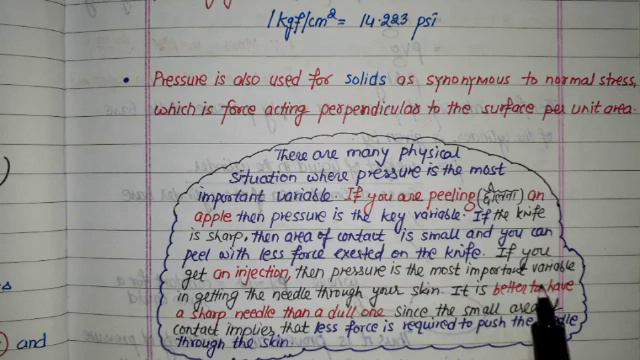 1 kgf/cm² = 14.223 psi
• Pressure is also used for solids as synonymous to normal stress,
which is force acting perpendicular to the surface per unit area.
There are many physical
situation where pressure is the most
important variable. If you are peeling (छीलना) an
apple then pressure is the key variable. If the knife
is sharp, then area of contact is small and you can
peel with less force exested on the knife. If you
get an injection, then pressure is the most important variable
in getting the needle through your skin. It is better to have
a sharp needle than a dull one since the small area
contact implies that less force is required to push the
through the skin.
and